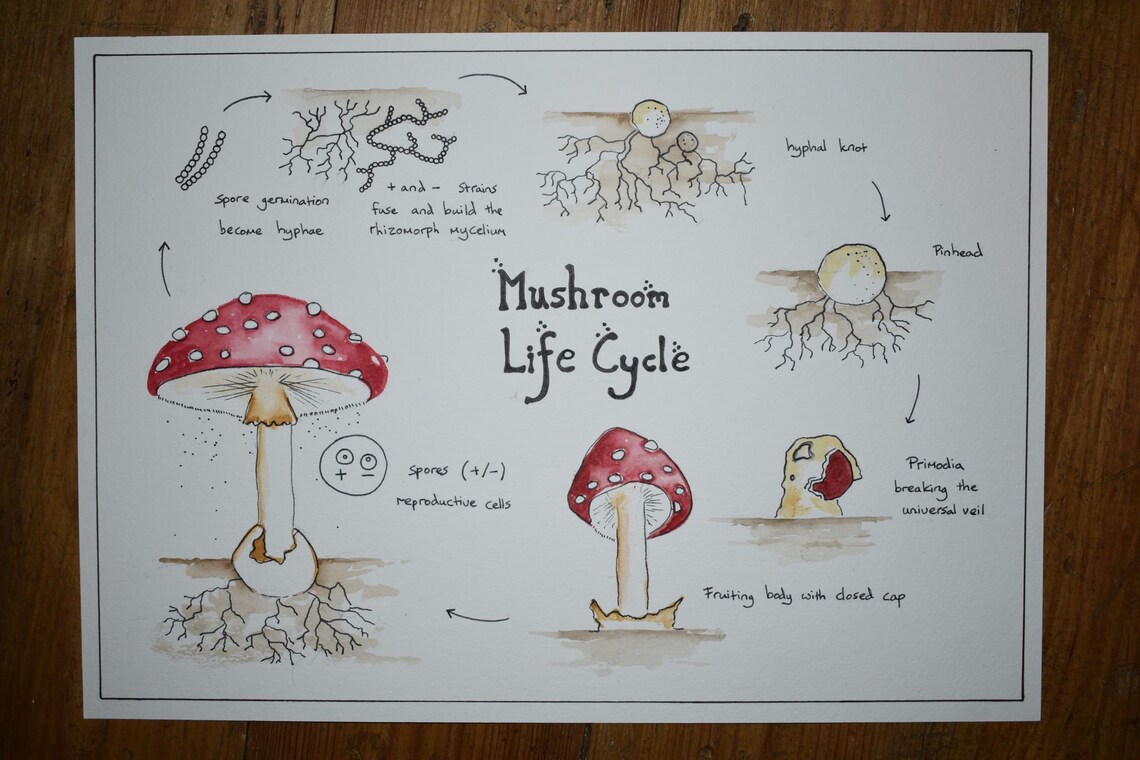 Mushroom
Life Cycle
Spore germination
become hyphae
+ and - strains
fuse and build the
rhizomorph mycelium
hyphal knot
Pinhead
Primodia
breaking the
universal veil
Fruiting body with closed cap
Spores (+/-)
reproductive cells
+ -